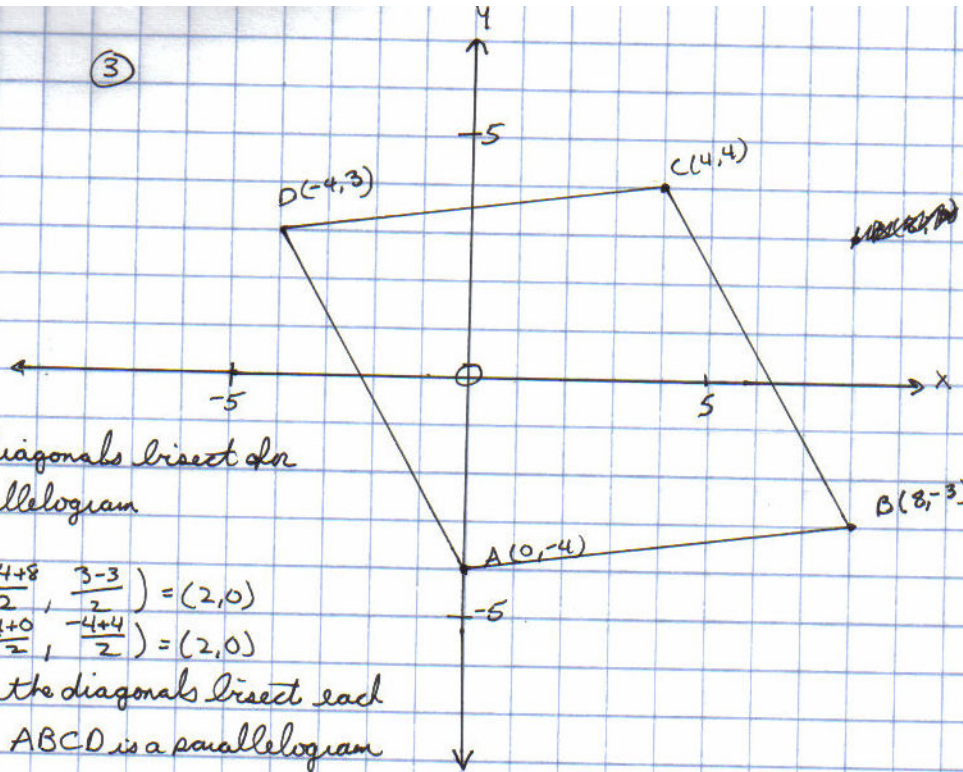 3
Y
5
C(4,4)
D(-4,3)
X
-5
5
iagonals bisect for
llelogram
B(8,-3)
A(0,-4)
4+8/2, 3-3/2) = (2,0)
-5
4+0/2, -4+4/2) = (2,0)
the diagonals bisect each
ABCD is a parallelogram